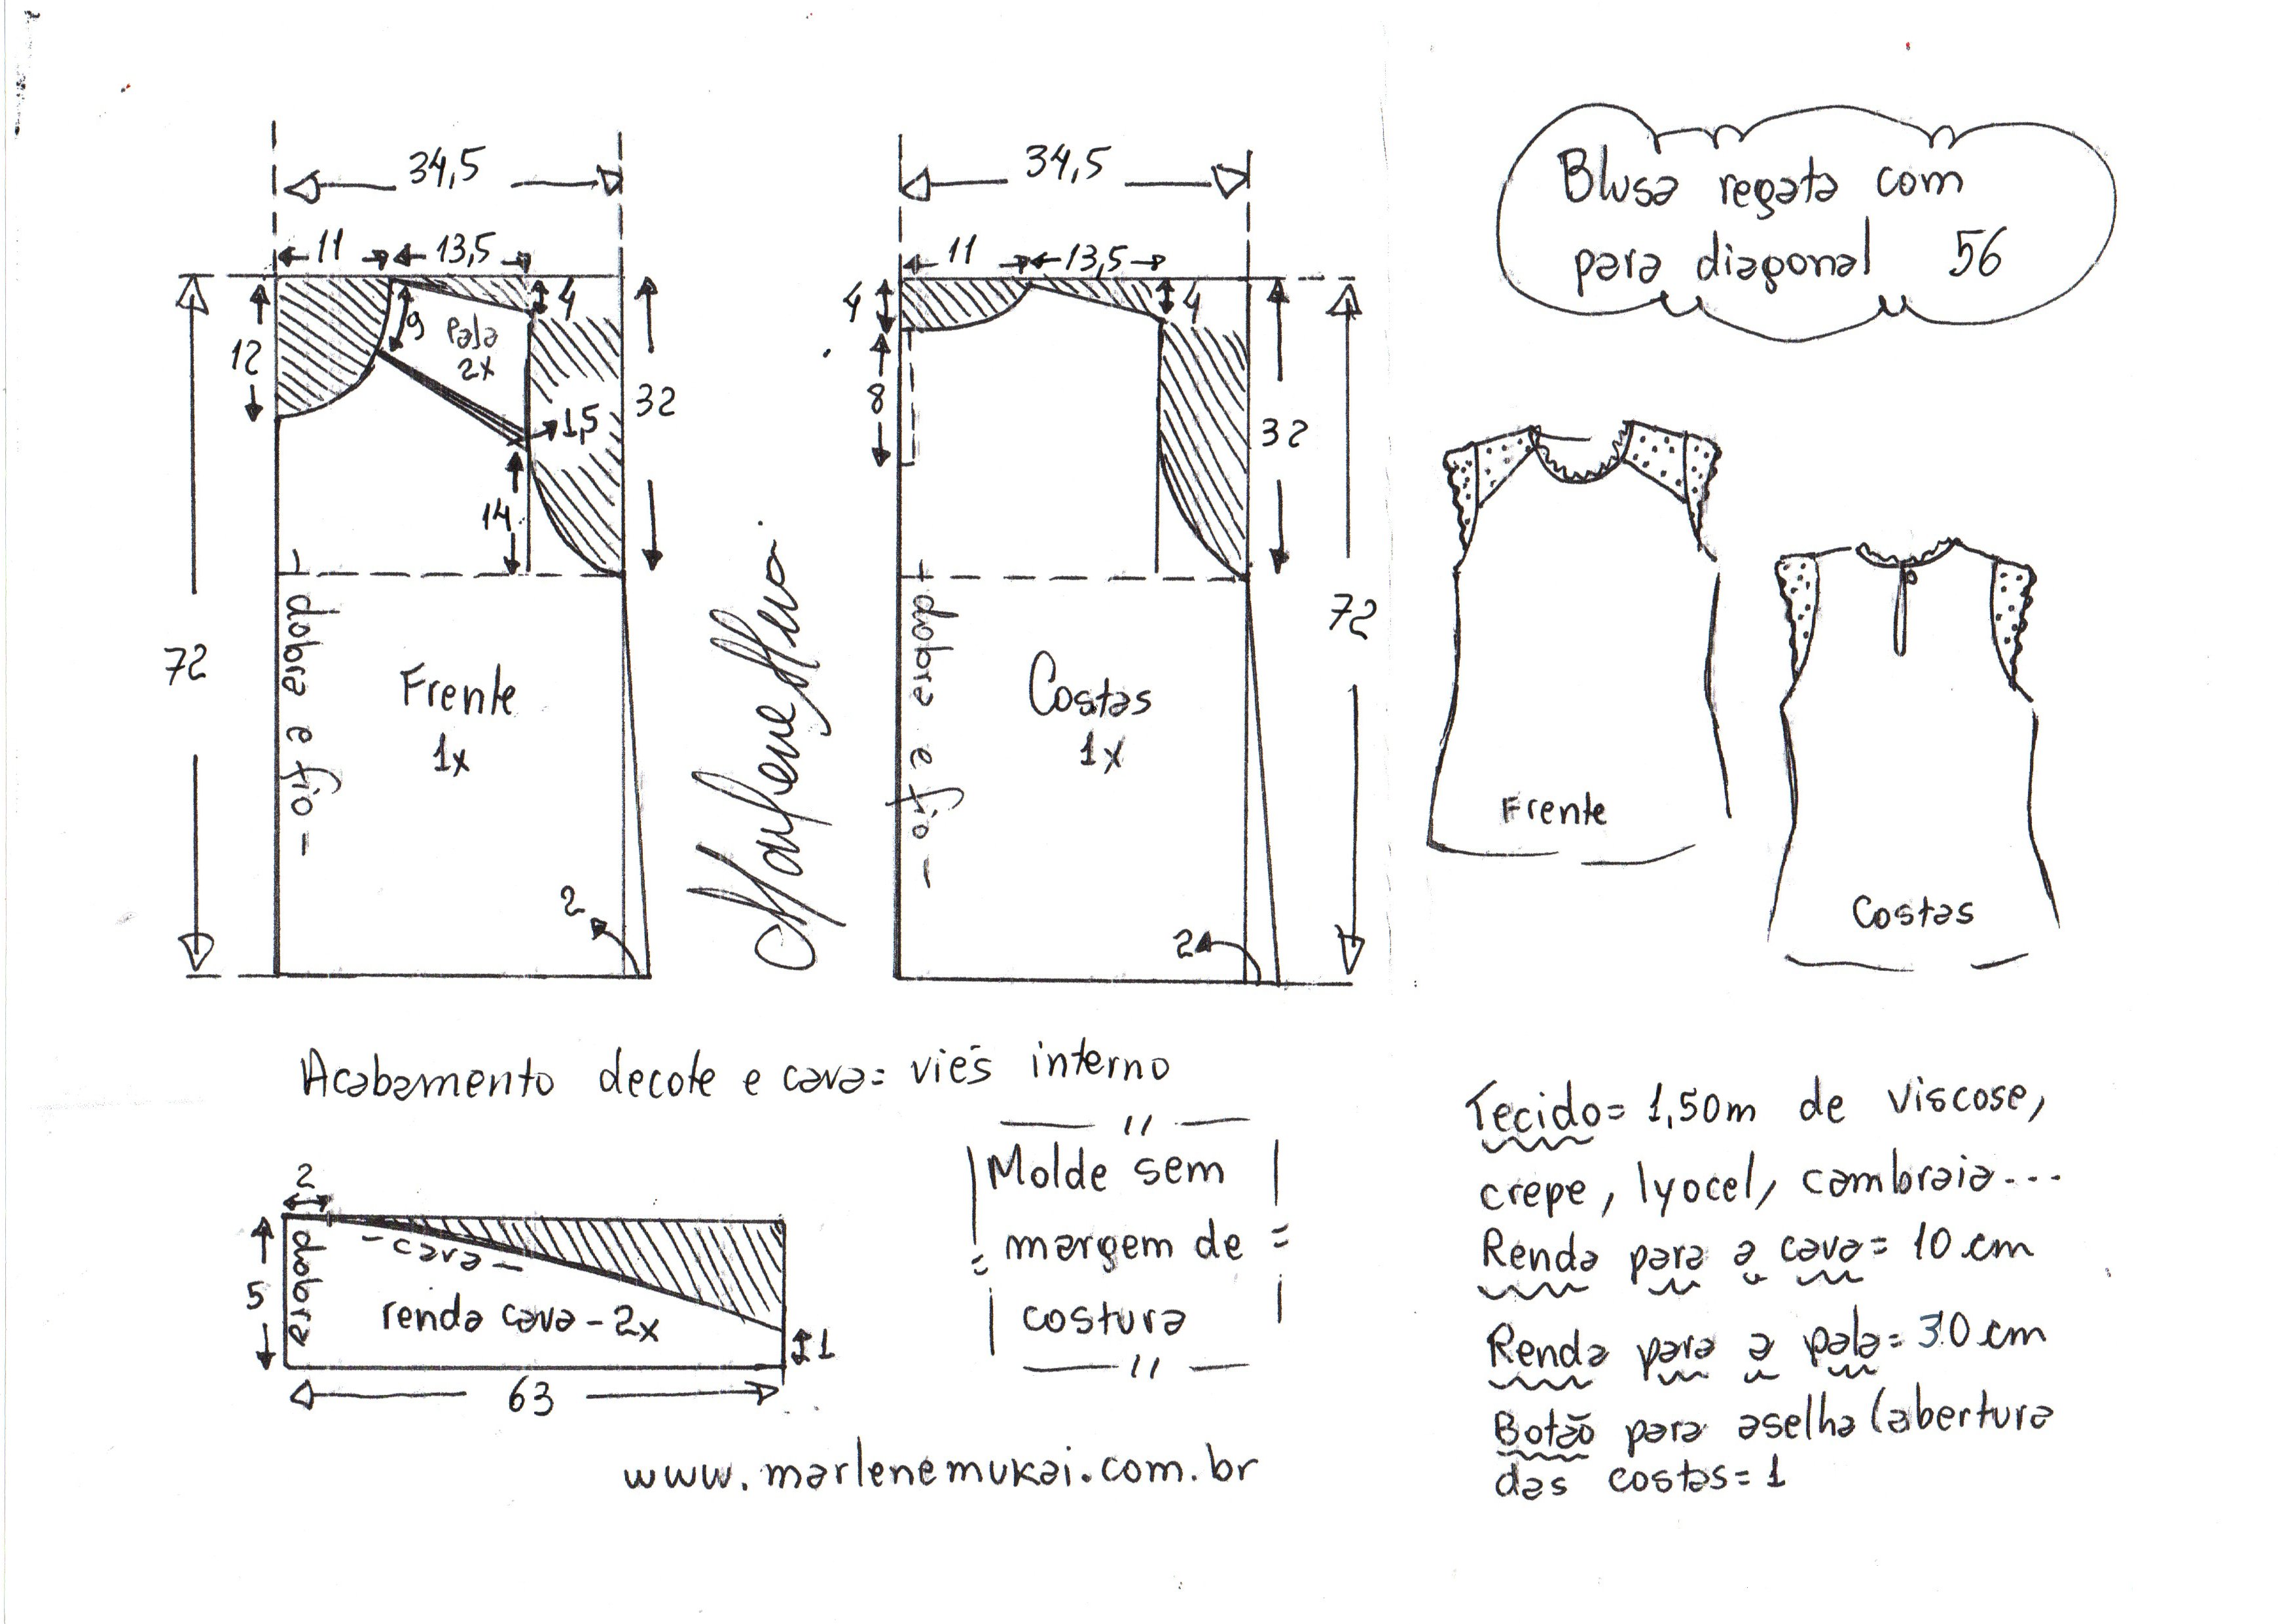 Blusa regata com
para diagonal 56
34,5
11
13,5
4
9
Pala
2x
12
1,5
32
14
72
dobra e fio
Frente
1x
2
Marlene Mukai
34,5
11
13,5
4
4
8
32
72
dobra e fio
Costas
1x
2
Frente
Costas
Acabamento decote e cava= viés interno
Molde sem
margem de
costura
2
5
dobra
-cava-
renda cava-2x
1
63
Tecido= 1,50m de viscose,
crepe, lyocel, cambraia...
Renda para a cava= 10 cm
Renda para a pala= 30 cm
Botão para aselha (abertura
das costas= 1
www.marlenemukai.com.br